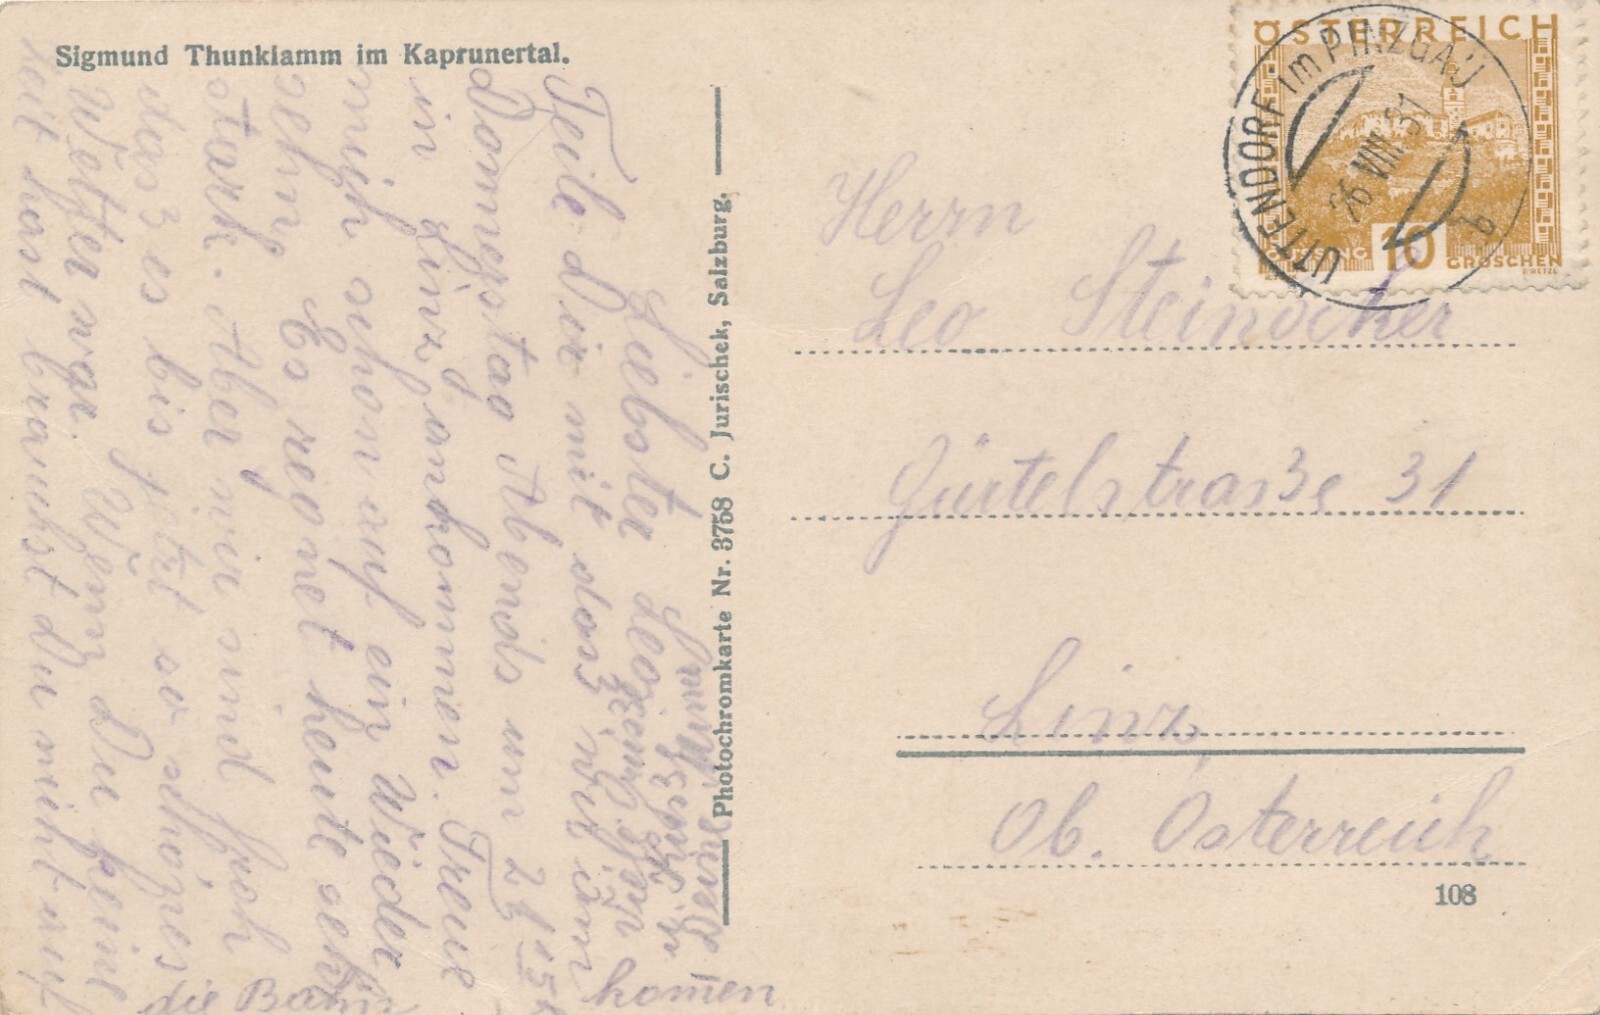 Sigmund Thunklamm im Kaprunertal.
Liebster Leo!
Teile Dir mit dass wir am
Donnerstag Abends um 21h 15
in Linz ankommen. Freue
mich schon auf ein Wieder
sehn. Es regnet heute sehr
stark. Aber wir sind froh
das es bis jetzt so schönes
Wetter war. Wenn Du keine
Zeit hast brauchst Du nicht auf
die Bahn
komen
Deine Mimi
Photochromkarte Nr. 3758 C. Jurischek, Salzburg.
ÖSTERREICH
10
GROSCHEN
UTTENDORF im PINZGAU
26 VIII 31
b
Herrn
Leo Steinocker
Gürtelstraße 31
Linz
Ob. Österreich
108